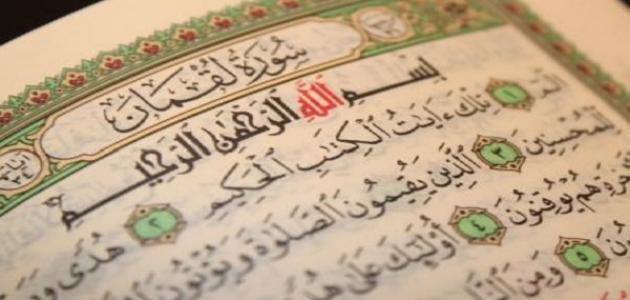 سُورَةُ لُقْمَانَ
بِسْمِ اللَّهِ الرَّحْمَٰنِ الرَّحِيمِ
الٓمٓ ١ تِلْكَ ءَايَٰتُ ٱلْكِتَٰبِ ٱلْحَكِيمِ ٢ هُدًى
لِّلْمُحْسِنِينَ ٣ ٱلَّذِينَ يُقِيمُونَ ٱلصَّلَوٰةَ وَيُؤْتُونَ
هُمْ يُوقِنُونَ ٤ أُو۟لَٰٓئِكَ عَلَىٰ
٥ وَمِنَ